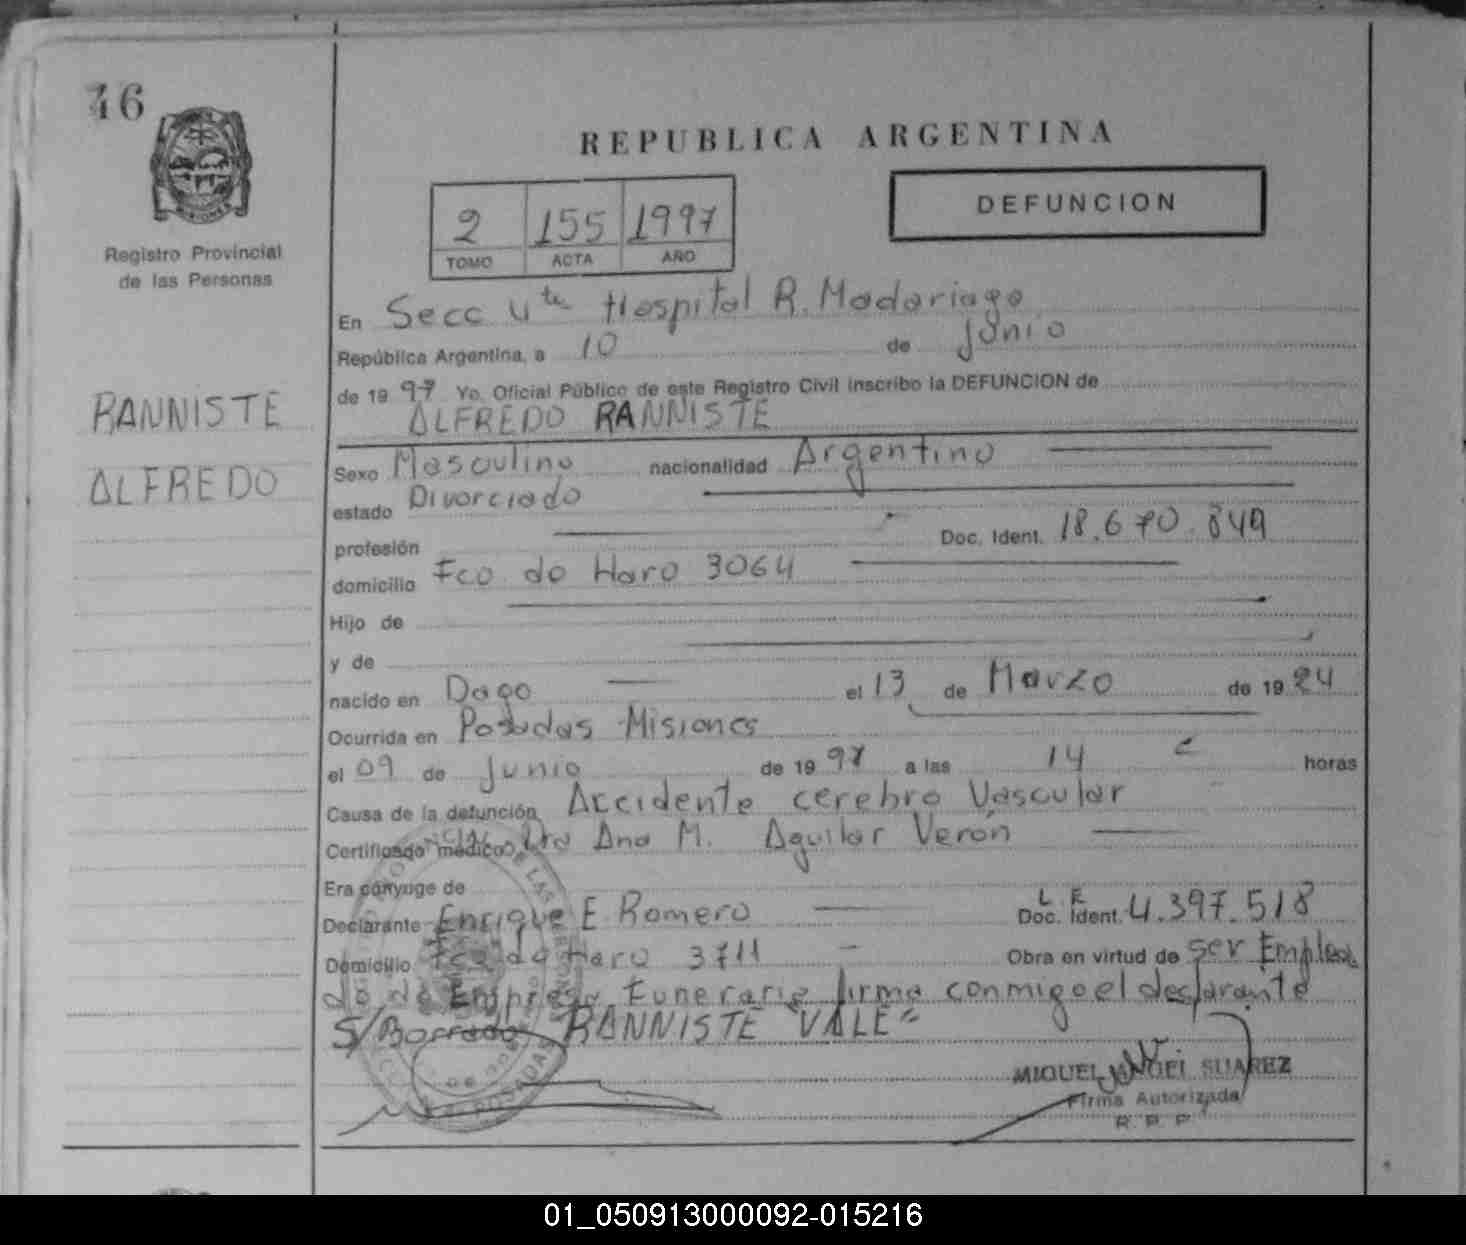 46
REPUBLICA ARGENTINA
DEFUNCION
2 155 1997
TOMO ACTA AÑO
Registro Provincial
de las Personas
RANNISTE
ALFREDO
En Secc 4ta Hospital R. Madariaga
República Argentina, a 10 de Junio
de 1997 Yo, Oficial Público de este Registro Civil inscribo la DEFUNCION de
ALFREDO RANNISTE
Sexo Masculino nacionalidad Argentino
estado Divorciado
profesión Doc. Ident. 18.670.849
domicilio Fco de Haro 3064
Hijo de
y de
nacido en Dago el 13 de Marzo de 1924
Ocurrida en Posadas Misiones
el 09 de Junio de 1997 a las 14 horas
Causa de la defunción Accidente cerebro Vascular
Certificado médico Dra Ana M. Aguilar Verón
Era cónyuge de
Declarante Enrique E. Romero L E Doc. Ident. 4.397.518
Domicilio Fco de Haro 3711 Obra en virtud de ser Emplea
do de Empresa Funeraria firma conmigo el declarante
S/Borrado RANNISTE "VALE"
MIGUEL ANGEL SUAREZ
Firma Autorizada
R. P. P.
POSADAS
01_050913000092-015216